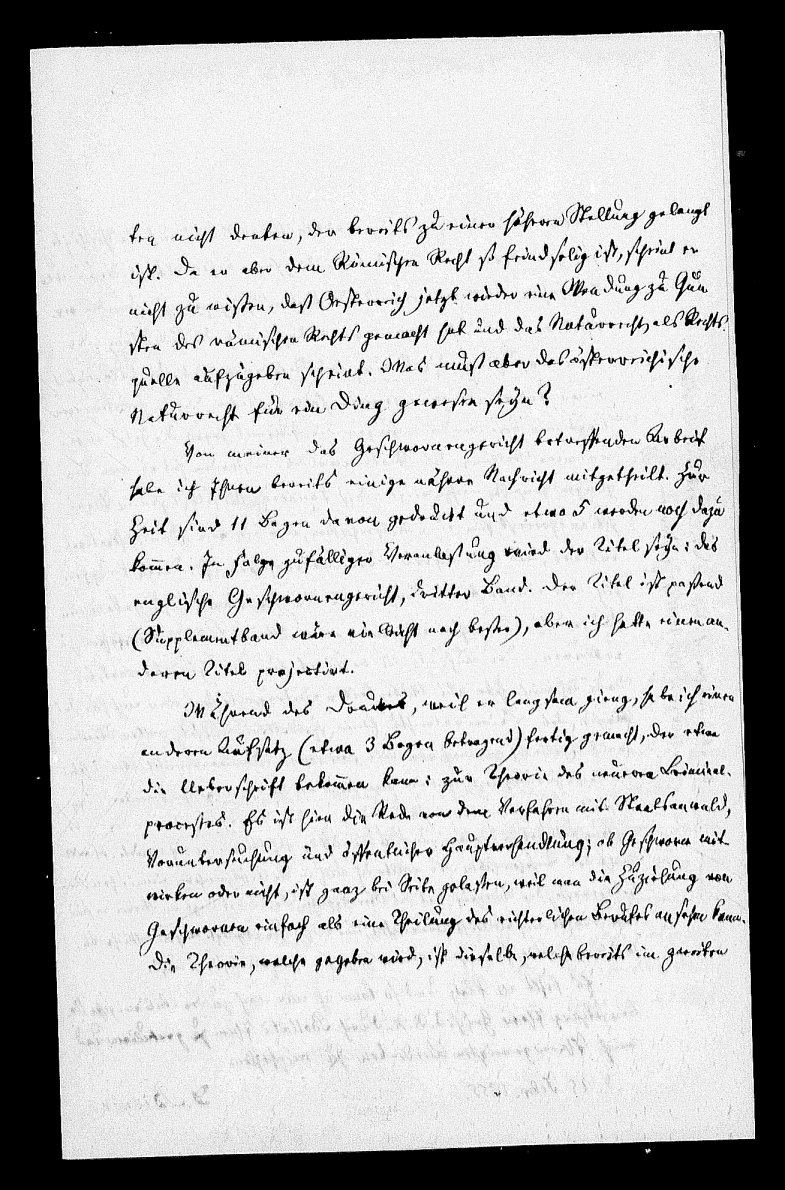 ten nicht denken, der bereits zu einer höheren Stellung gelangt
ist. Da er aber dem Römischen Recht so feindselig ist, scheint er
nicht zu wissen, daß Oesterreich jetzt wieder eine Wendung zu Gun
sten des römischen Rechts gemacht hat und das Naturrecht als Rechts
quelle aufzugeben scheint. Was muß aber das österreichische
Naturrecht für ein Ding gewesen seyn?
Von meiner das Geschwornengericht betreffenden Arbeit
habe ich Ihnen bereits einige nähere Nachricht mitgetheilt. Zur
Zeit sind 11 Bogen davon gedruckt und etwa 5 werden noch dazu
kommen. In Folge zufälliger Veranlassung wird der Titel seyn: das
englische Geschwornengericht, dritter Band. Der Titel ist passend
(Supplementband wäre vielleicht noch besser), aber ich hatte einen an-
deren Titel projectirt.
Während des Druckes, weil er langsam gieng, habe ich einen
anderen Aufsatz (etwa 3 Bogen betragend) fertig gemacht, der etwa
die Ueberschrift bekommen kann: zur Theorie des neueren Criminal-
processes. Es ist hier die Rede von dem Verfahren mit Staatsanwald,
Voruntersuchung und öffentlicher Hauptverhandlung; ob Geschworne mit-
wirken oder nicht, ist ganz bei Seite gelassen, weil man die Zuziehung von
Geschwornen einfach als eine Theilung des richterlichen Berufes ansehen kann.
Die Theorie, welche gegeben wird, ist dieselbe, welche bereits im zweiten